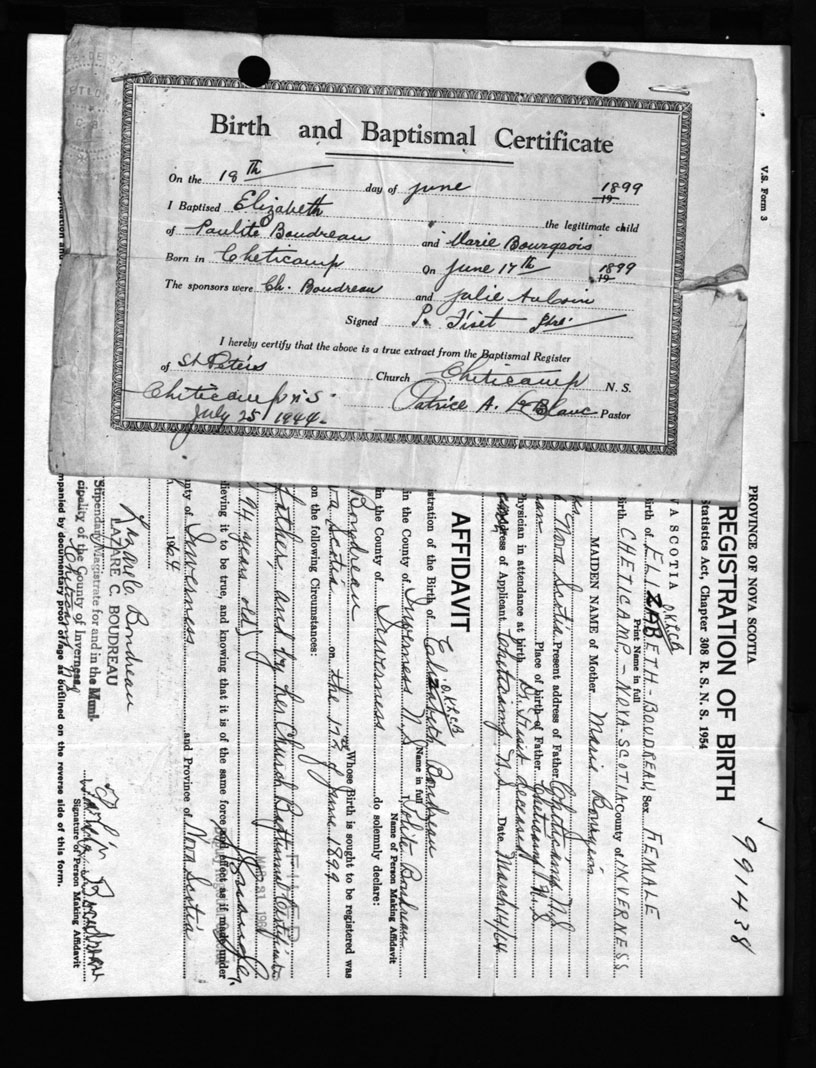 Birth and Baptismal Certificate
On the 18th day of June 1899
I Baptised Elizabeth the legitimate child
of Paulite Boudreau and Marie Bourgeois
Born in Cheticamp On June 17th 1899
The sponsors were Ch. Boudreau and Julie Aucoin
Signed P. Fiset Ptre.
I hereby certify that the above is a true extract from the Baptismal Register
of St Peters Church Cheticamp N. S.
Cheticamp N.S. Patrice A. LeBlanc Pastor
July 25/1944.
V.S. Form 3
991438
PROVINCE OF NOVA SCOTIA
REGISTRATION OF BIRTH
Statistics Act, Chapter 308 R. S. N. S. 1954
A SCOTIA
Birth of ELIZABETH - BOUDREAU, Sex FEMALE
Print Name in full
Birth CHETICAMP - NOVA-SCOTIA County of INVERNESS
MAIDEN NAME of Mother Marie Bourgeois
Nova Scotia Present address of Father Cheticamp N.S
Place of birth of Father Cheticamp N.S
Physician in attendance at birth Dr. Fiset deceased
Address of Applicant Cheticamp N.S. Date March 14/64
AFFIDAVIT
stration of the Birth of Elizabeth Boudreau
Name in full
in the County of Inverness N.S I, Polite Boudreau
Name of Person Making Affidavit
in the County of Inverness do solemnly declare:
Boudreau Whose Birth is sought to be registered was
va Scotia on the 17 of June 1899
on the following Circumstances:
father, and by her Church Baptismal Certificate
94 years old)
lieving it to be true, and knowing that it is of the same force and effect as if made under
nty of Inverness and Province of Nova Scotia
1964
Lazare C Boudreau
LAZARE C. BOUDREAU
Stipendiary Magistrate for and in the Muni-
cipality of the County of Inverness
Signature of Person Making Affidavit
mpanied by documentary proof of age as outlined on the reverse side of this form.